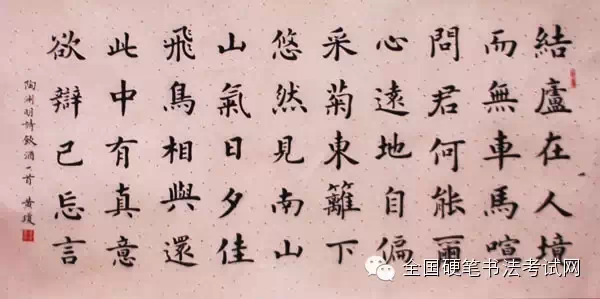 結廬在人境
而無車馬喧
問君何能爾
心遠地自偏
采菊東籬下
悠然見南山
山氣日夕佳
飛鳥相與還
此中有真意
欲辯已忘言
陶渊明詩飲酒一首 黄瓊
全国硬笔书法考试网